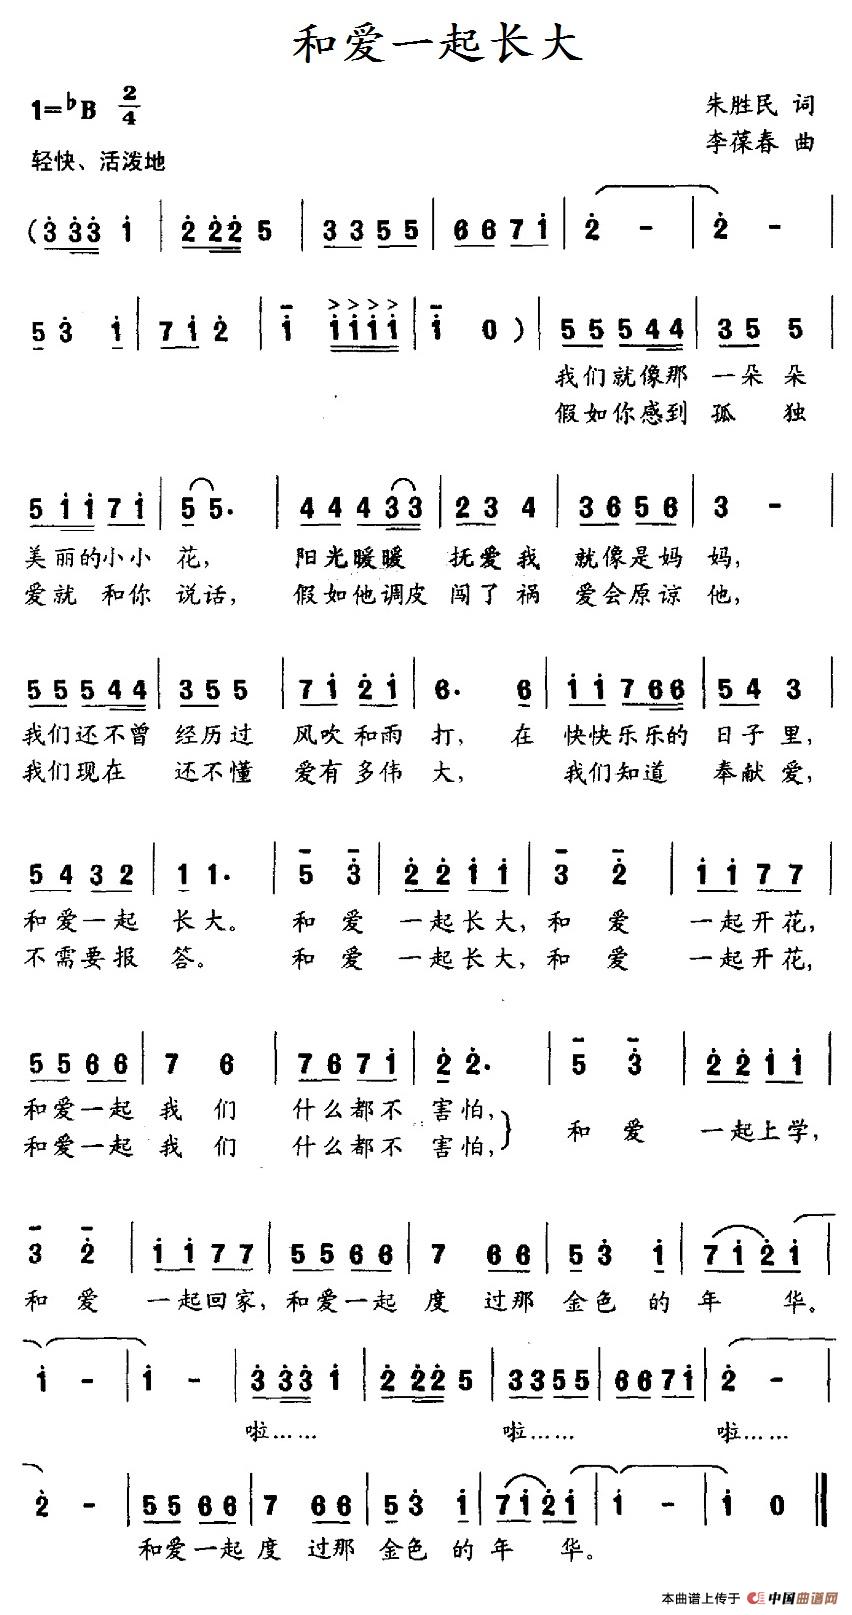 和爱一起长大
1=♭B 2/4
朱胜民 词
李葆春 曲
轻快、活泼地
( 3 3 3 1 | 2 2 2 5 | 3 3 5 5 | 6 6 7 1 | 2 - | 2 - |
5 3 1 | 7 1 2 | 1 1 1 1 1 | 1 0 ) | 5 5 5 4 4 | 3 5 5 |
我们就像那 一朵朵
假如你感到 孤 独
5 1 1 7 1 | 5 5. | 4 4 4 3 3 | 2 3 4 | 3 6 5 6 | 3 - |
美丽的小小 花, 阳光暖暖 抚爱我 就像是妈 妈,
爱就 和你 说话, 假如他调皮 闯了 祸 爱会原谅 他,
5 5 5 4 4 | 3 5 5 | 7 1 2 1 | 6. 6 | 1 1 7 6 6 | 5 4 3 |
我们还不曾 经历过 风吹和雨 打, 在 快快乐乐的 日子里,
我们现在 还不懂 爱有多伟 大, 我们知道 奉献爱,
5 4 3 2 | 1 1. | 5 3 | 2 2 1 1 | 3 2 | 1 1 7 7 |
和爱一起 长大。 和 爱 一起长大, 和 爱 一起开花,
不需要报 答。 和 爱 一起长大, 和 爱 一起开花,
5 5 6 6 | 7 6 | 7 6 7 1 | 2 2. | 5 3 | 2 2 1 1 |
和爱一起 我 们 什么都不 害怕,
和爱一起 我 们 什么都不 害怕,
和 爱 一起上学,
3 2 | 1 1 7 7 | 5 5 6 6 | 7 6 6 | 5 3 1 | 7 1 2 1 |
和 爱 一起回家, 和爱一起 度 过那 金色 的 年 华。
1 - | 1 - | 3 3 3 1 | 2 2 2 5 | 3 3 5 5 | 6 6 7 1 | 2 - |
啦…… 啦…… 啦……
2 - | 5 5 6 6 | 7 6 6 | 5 3 1 | 7 1 2 1 | 1 - | 1 0 ‖
和爱一起 度 过那 金色 的 年 华。
本曲谱上传于 中国曲谱网